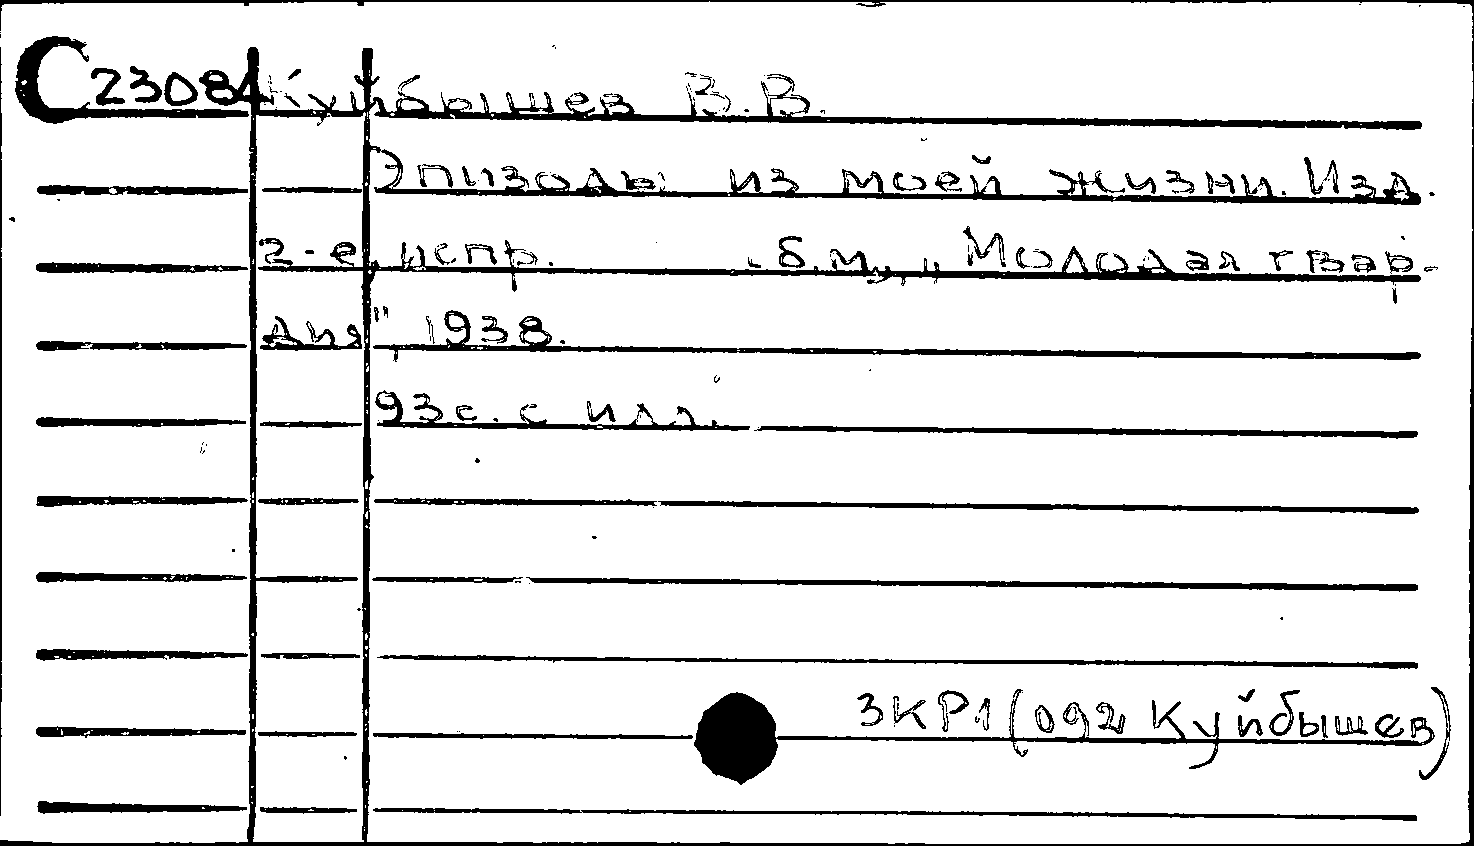 С23084 Куйбышев В.В.
Эпизоды из моей жизни. Изд.
2-е, испр. .б.м., „Молодая гвар-
дия", 1938.
93с. с илл.
3КР1(092 Куйбышев)